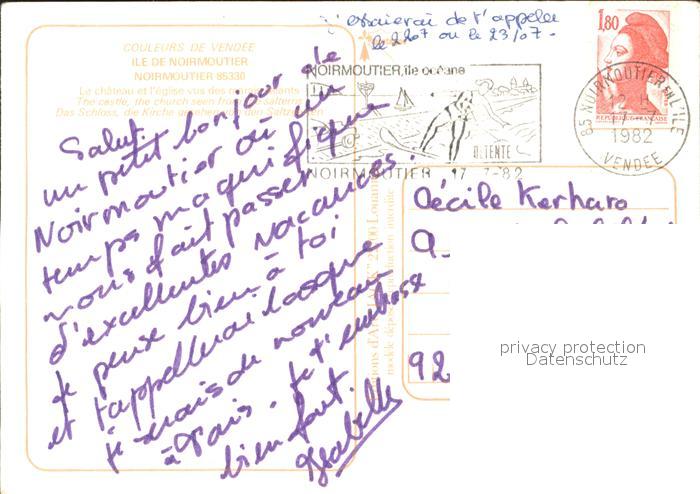 J'essaierai de t'appeler
le 2207 ou le 23/07-
COULEURS DE VENDÉE
ILE DE NOIRMOUTIER
NOIRMOUTIER 85330
Le château et l'église vus des marais salants
The castle, the church seen from the salterns
Das Schloss, die Kirche gesehen von den Salzgärten
NOIRMOUTIER, île océane
DETENTE
NOIRMOUTIER 17-7-82
1,80
REPUBLIQUE FRANÇAISE
85 NOIRMOUTIER EN L'ILE
12 H
1982
VENDEE
Salut.
un petit bonjour de
Noirmoutier où un
temps magnifique
nous fait passer
d'excellentes vacances.
Je pense bien à toi
et t'appellerai lorsque
je serais de nouveau
à Paris. Je t'embrasse
bien fort.
Isabelle
Cécile Kerharo
9
92
privacy protection
Datenschutz